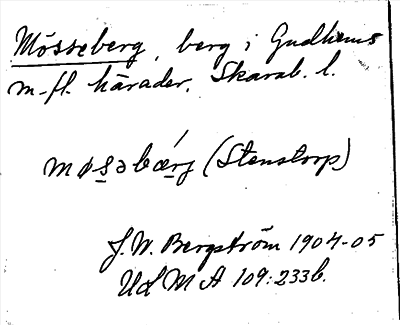 Mösseberg, berg i Gudhems
m. fl. härader, Skarab. l.
møsəbærj (Stenstorp)
J. W. Bergström 1904-05
ULMA 109:233b.